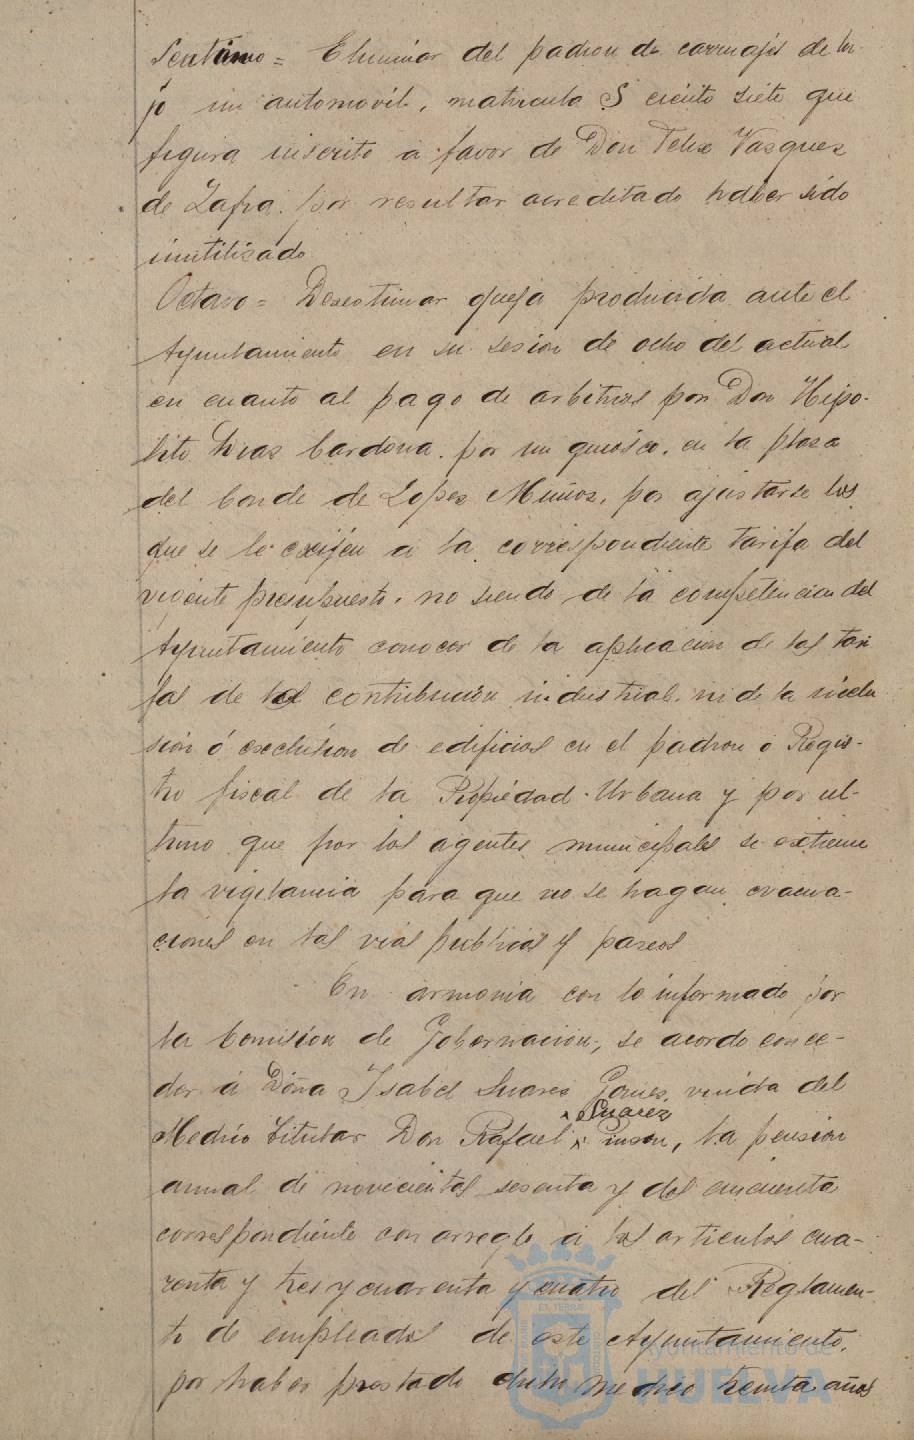 Septimo = Eliminar del padron de carruajes de lu-
jo un automovil, matricula S ciento siete que
figura inscrito a favor de Don Felix Vazquez
de Zafra. por resultar acreditado haber sido
inutilizado
Octavo = Desestimar queja producida ante el
Ayuntamiento en su sesion de ocho del actual
en cuanto al pago de arbitrios por Don Hipo-
lito Cardona. por un quiosco. en la plaza
del Conde de Lopez Muñoz, por ajustarse los
que se le exijen a la correspondiente tarifa del
vigente presupuesto. no siendo de la competencia del
Ayuntamiento conocer de la aplicacion de las tari
fas de la contribucion industrial. ni de la inclu
sion ó exclusion de edificios en el padron o Regis-
tro fiscal de la Propiedad Urbana y por ul-
timo que por los agentes municipales se extreme
la vigilancia para que no se hagan evacua-
ciones en las vias publicas y paseos
En armonia con lo informado por
la Comision de Gobernacion, se acordo conce-
der á Doña Isabel Suares Gomes, viuda del
Medico titular Don Rafael Suarez Pinson, la pension
anual de novecientas sesenta y dos cincuenta
correspondiente con arreglo a los articulos cua-
renta y tres y cuarenta y cuatro del Reglamen-
to de empleados de este Ayuntamiento.
por haber prestado dicho medico treinta años
Ayuntamiento de
HUELVA